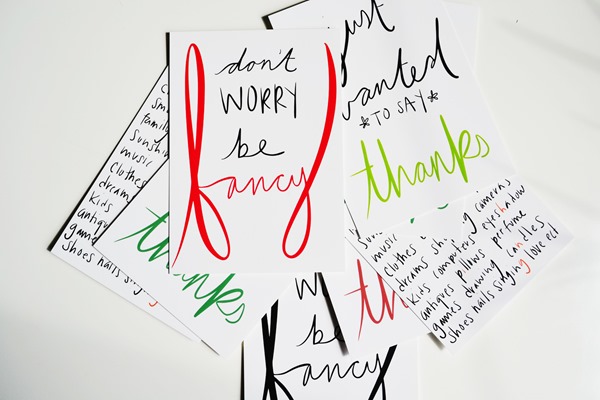 don't
WORRY
be
fancy
just
wanted
TO SAY
thanks
family
music
Clothes
dreams
Kids
shoes nails
thanks
music
Clothes
dreams cameras
Kids computers eyeshadow
antiques pillows perfume
games drawing candles
shoes nails singing love ect
be
fancy